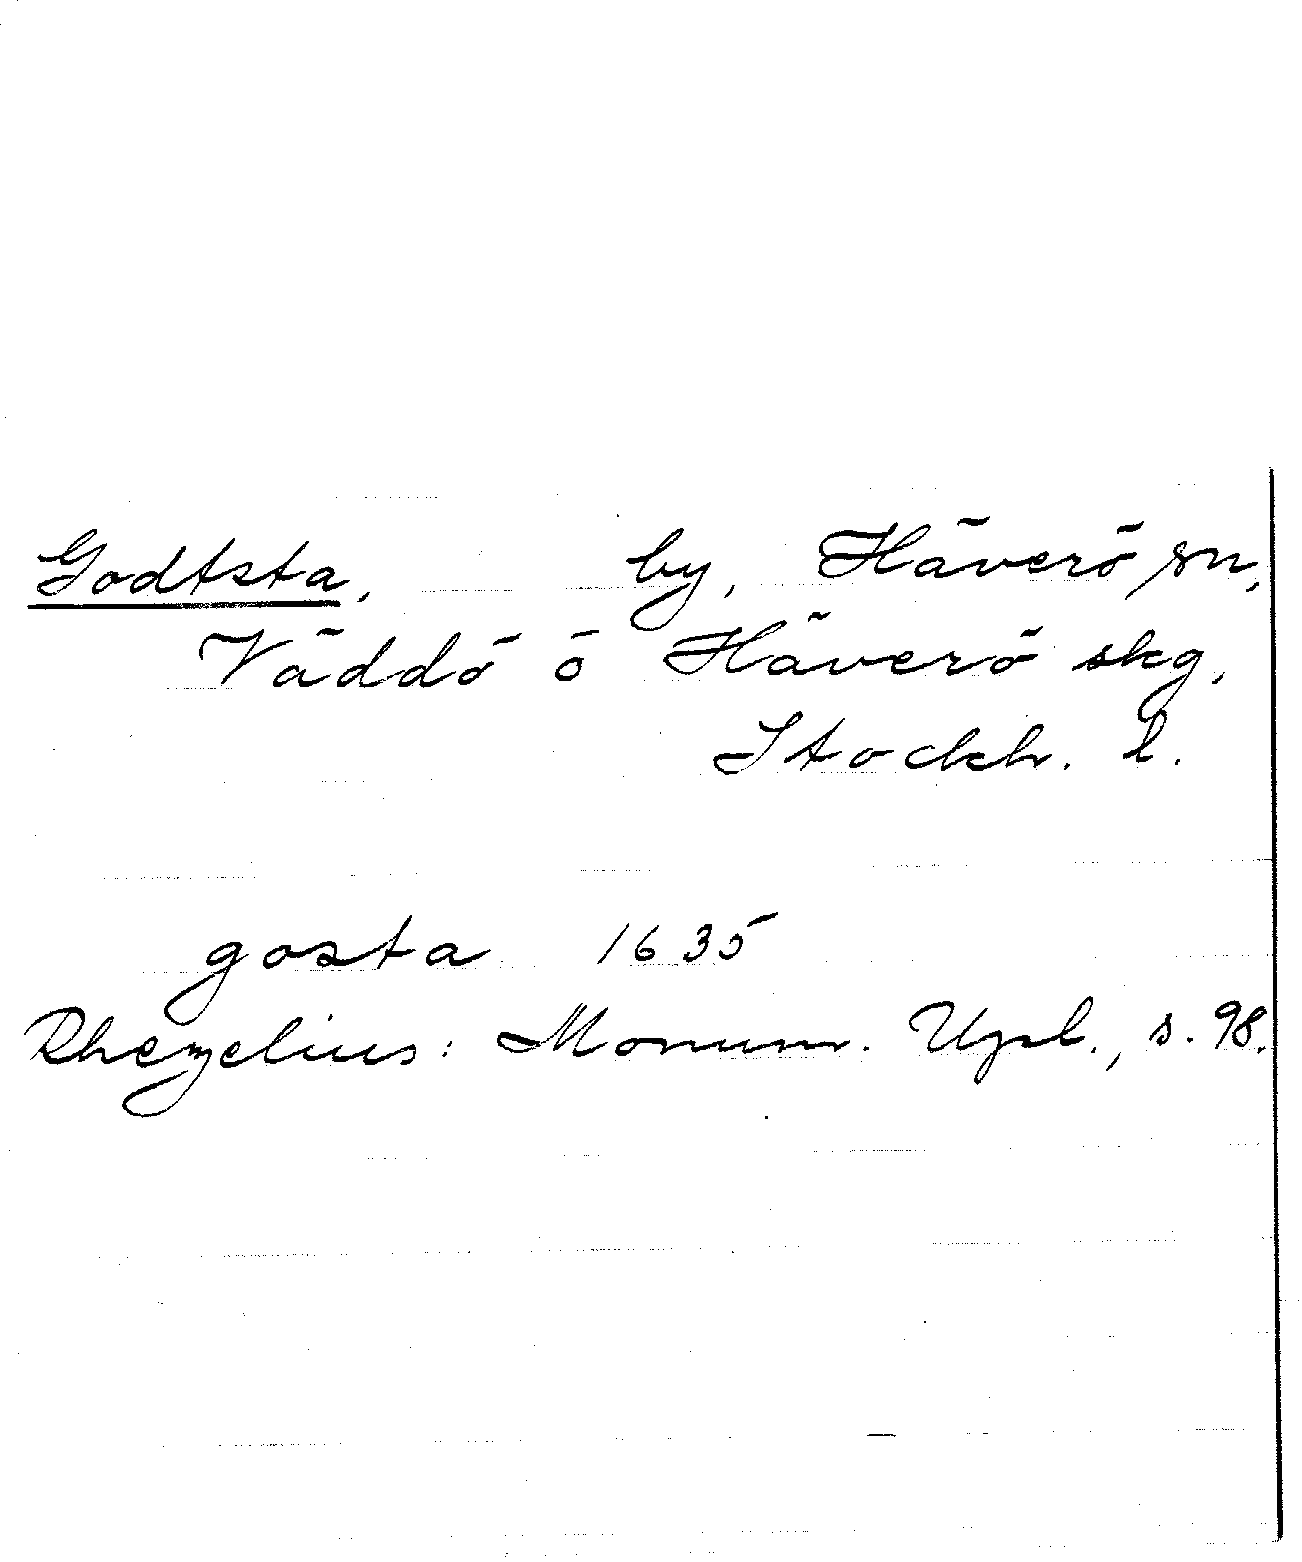 Godtsta, by, Häverö sn,
Väddö o Häverö skg,
Stockh. l.
gosta 1635
Rhezelius: Monum. Upl., s. 98.